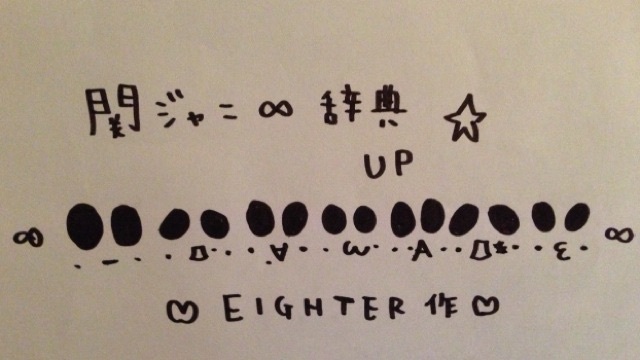 関ジャニ∞ 辞典 ☆
UP
∞ ●● ●● ●● ●● ●● ●● ●● ∞
♡ EIGHTER 作 ♡